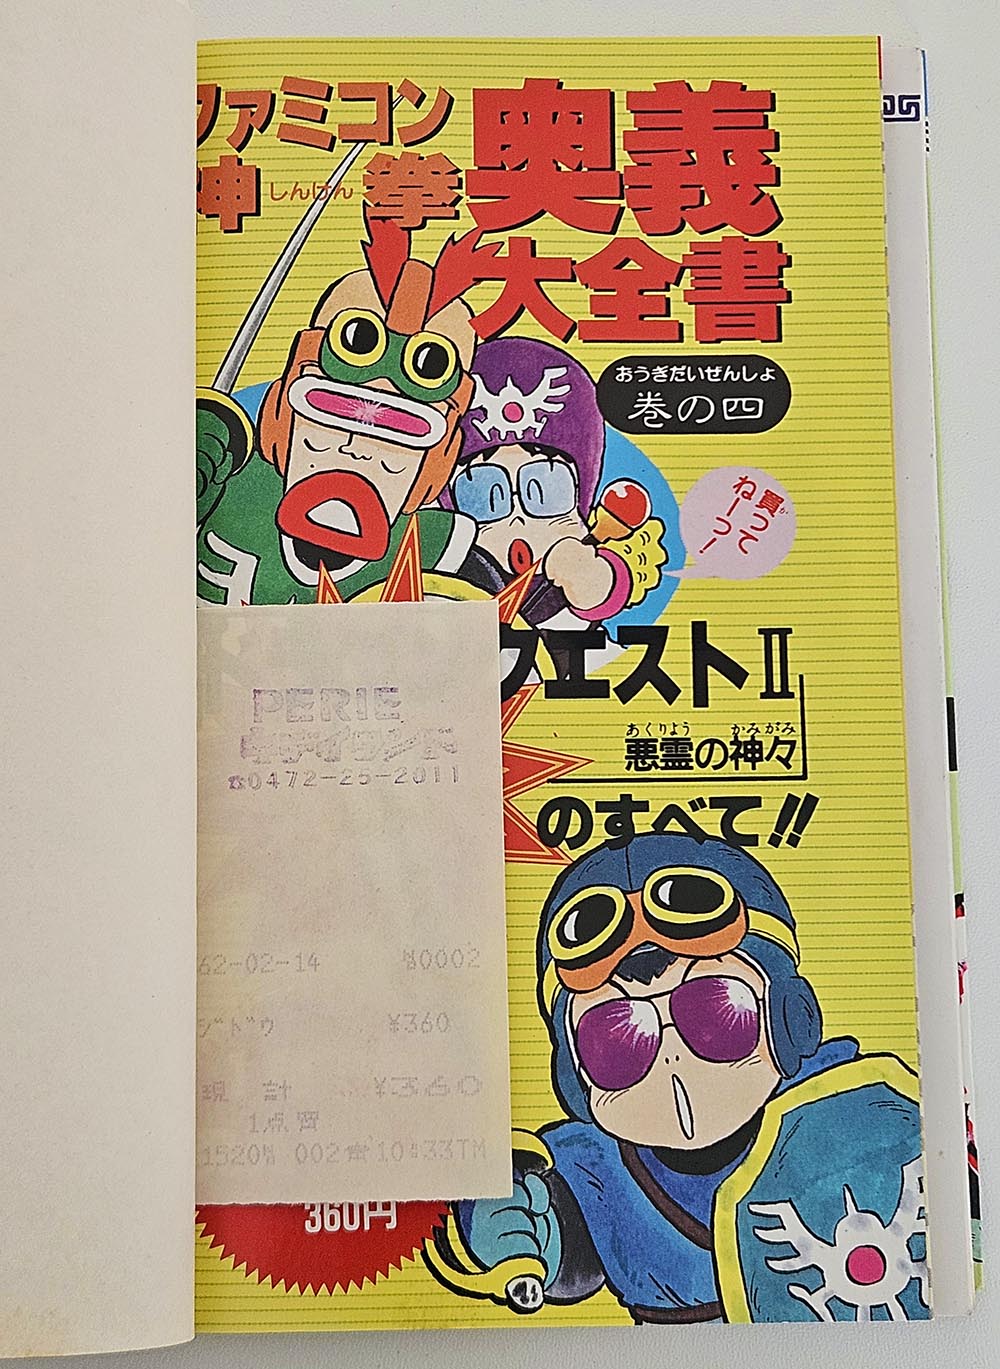 ファミコン
神拳
しんけん
奥義
大全書
おうぎだいぜんしょ
巻の四
買って
ねーっ!
クエストⅡ
あくりょう かみがみ
悪霊の神々
のすべて!!
PERIE
☎0472-25-2011
62-02-14 №0002
ジドウ ¥360
現 計 ¥360
1点買
10:33TM
360円